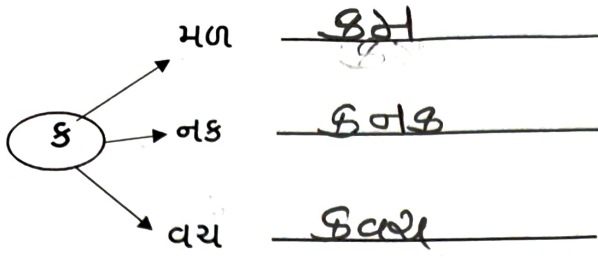 મળ કમ
ક નક કનક
વચ કવચ